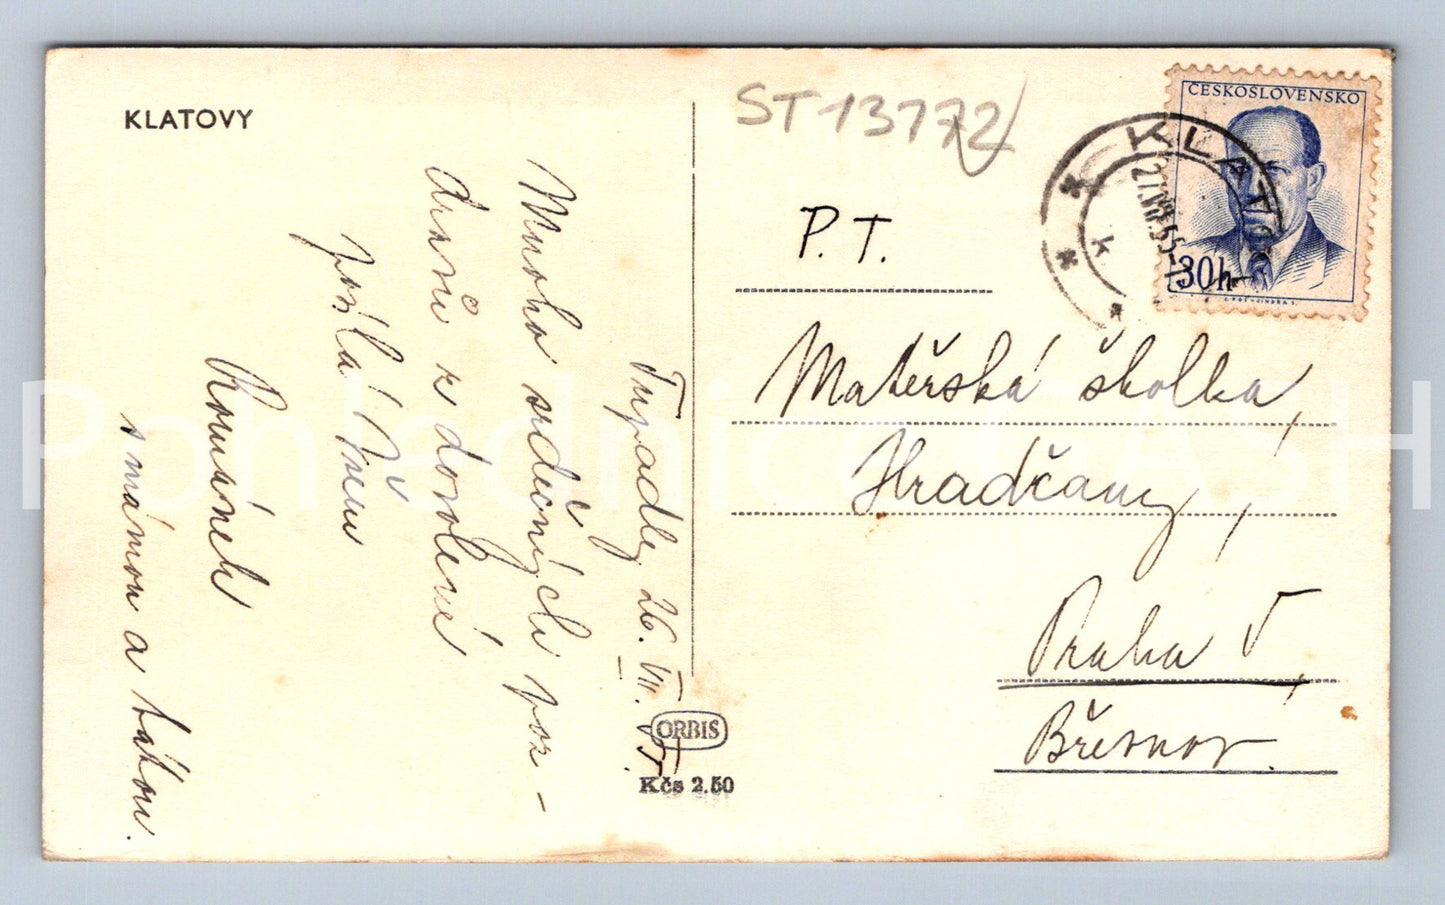 KLATOVY
Tupadly 26. VII. 55.
Mnoho srdečných poz-
dravů z dovolené
posílá Vám
Románek
s mámou a tátou.
ORBIS
Kčs 2.50
ST 13772
ČESKOSLOVENSKO
30h
KLATO
27.VII.55
k
P. T.
Mateřská školka,
Hradčany,
Praha V,
Břevnov.
Pohlednice